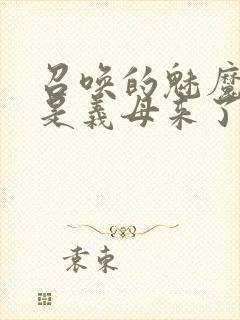 召唤的魅魔
是义母来了
袁束